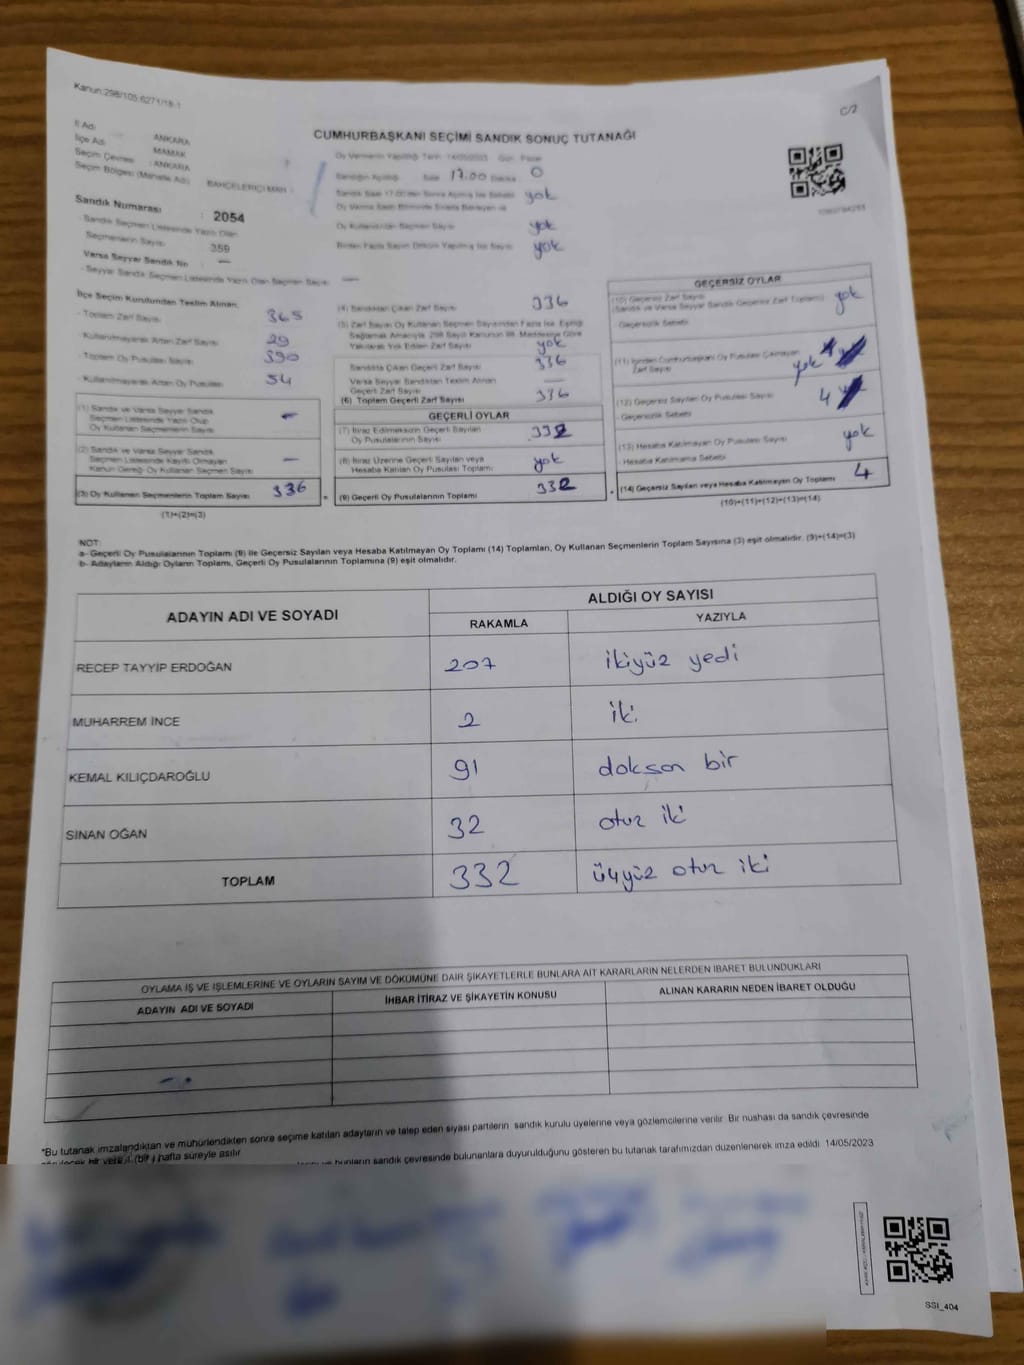 Kanun:298/105-6271/18-1
C/2
İl Adı ANKARA
İlçe Adı MAMAK
Seçim Çevresi : ANKARA
Seçim Bölgesi (Mahalle Adı) BAHÇELERİÇİ MAH.
Sandık Numarası : 2054
- Sandık Seçmen Listesinde Yazılı Olan
Seçmenlerin Sayısı 359
Varsa Seyyar Sandık No —
- Seyyar Sandık Seçmen Listesinde Yazılı Olan Seçmen Sayısı —
CUMHURBAŞKANI SEÇİMİ SANDIK SONUÇ TUTANAĞI
Oy Vermenin Yapıldığı Tarih 14/05/2023 Gün Pazar
Sandığın Açıldığı Saat 17.00 Dakika 0
yok
Oy Kullandırılan Seçmen Sayısı yok
yok
İlçe Seçim Kurulundan Teslim Alınan;
- Toplam Zarf Sayısı 365
- Kullanılmayarak Artan Zarf Sayısı 29
- Toplam Oy Pusulası Sayısı 390
- Kullanılmayarak Artan Oy Pusulası 54
(1) Sandık ve Varsa Seyyar Sandık
Seçmen Listesinde Yazılı Olup
Oy Kullanan Seçmenlerin Sayısı —
(2) Sandık ve Varsa Seyyar Sandık
Seçmen Listesinde Kayıtlı Olmayan
Kanun Gereği Oy Kullanan Seçmen Sayısı —
(3) Oy Kullanan Seçmenlerin Toplam Sayısı 336
(1)+(2)=(3)
(4) Sandıktan Çıkan Zarf Sayısı 336
(5) Zarf Sayısı Oy Kullanan Seçmen Sayısından Fazla İse, Eşitliği
Sağlamak Amacıyla, 298 Sayılı Kanunun 98. Maddesine Göre
Yakılarak Yok Edilen Zarf Sayısı yok
Sandıkta Çıkan Geçerli Zarf Sayısı 336
Varsa Seyyar Sandıktan Teslim Alınan
Geçerli Zarf Sayısı —
(6) Toplam Geçerli Zarf Sayısı 336
GEÇERLİ OYLAR
(7) İtiraz Edilmeksizin Geçerli Sayılan
Oy Pusulalarının Sayısı 332
(8) İtiraz Üzerine Geçerli Sayılan veya
Hesaba Katılan Oy Pusulası Toplamı yok
(9) Geçerli Oy Pusulalarının Toplamı 332
GEÇERSİZ OYLAR
(10) Geçersiz Zarf Sayısı
(Sandık ve Varsa Seyyar Sandık Geçersiz Zarf Toplamı) yok
Geçersizlik Sebebi
(11) İçinden Cumhurbaşkanı Oy Pusulası Çıkmayan
Zarf Sayısı yok
(12) Geçersiz Sayılan Oy Pusulası Sayısı 4
Geçersizlik Sebebi
(13) Hesaba Katılmayan Oy Pusulası Sayısı yok
Hesaba Katılmama Sebebi
(14) Geçersiz Sayılan veya Hesaba Katılmayan Oy Toplamı 4
(10)+(11)+(12)+(13)=(14)
NOT:
a- Geçerli Oy Pusulalarının Toplamı (9) ile Geçersiz Sayılan veya Hesaba Katılmayan Oy Toplamı (14) Toplamları, Oy Kullanan Seçmenlerin Toplam Sayısına (3) eşit olmalıdır. (9)+(14)=(3)
b- Adayların Aldığı Oyların Toplamı, Geçerli Oy Pusulalarının Toplamına (9) eşit olmalıdır.
ADAYIN ADI VE SOYADI
ALDIĞI OY SAYISI
RAKAMLA YAZIYLA
RECEP TAYYİP ERDOĞAN 207 ikiyüz yedi
MUHARREM İNCE 2 iki
KEMAL KILIÇDAROĞLU 91 doksan bir
SİNAN OĞAN 32 otuz iki
TOPLAM 332 üçyüz otuz iki
OYLAMA İŞ VE İŞLEMLERİNE VE OYLARIN SAYIM VE DÖKÜMÜNE DAİR ŞİKAYETLERLE BUNLARA AİT KARARLARIN NELERDEN İBARET BULUNDUKLARI
ADAYIN ADI VE SOYADI İHBAR İTİRAZ VE ŞİKAYETİN KONUSU ALINAN KARARIN NEDEN İBARET OLDUĞU
*Bu tutanak imzalandıktan ve mühürlendikten sonra seçime katılan adayların ve talep eden siyasi partilerin sandık kurulu üyelerine veya gözlemcilerine verilir. Bir nushası da sandık çevresinde
bir yere 1 (bir) hafta süreyle asılır
bunların sandık çevresinde bulunanlara duyurulduğunu gösteren bu tutanak tarafımızdan düzenlenerek imza edildi. 14/05/2023
SSI_404